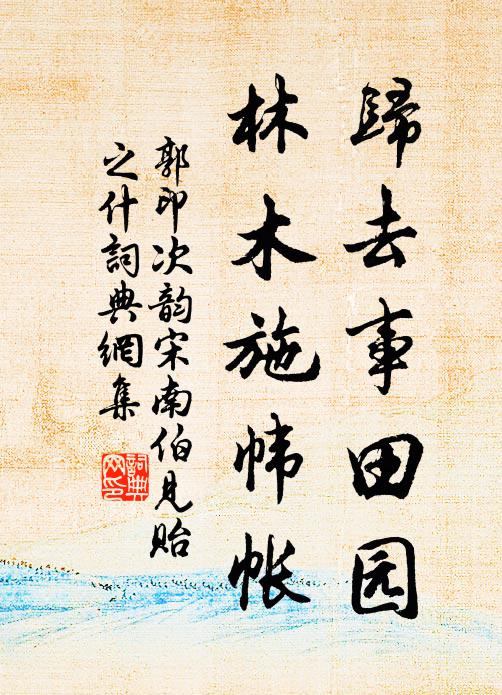 歸去事田园
林木施帏帐
郭印次韵宋南伯見貽
之什詞典網集
詞典
网印